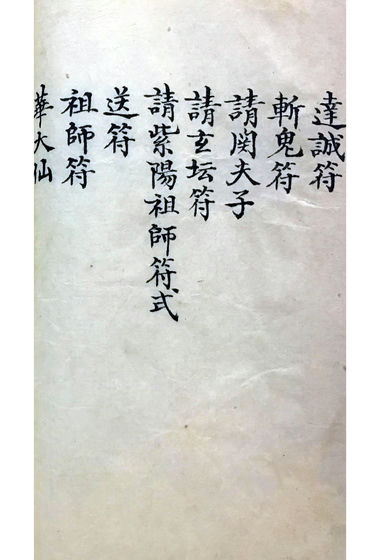 達誠符
斬鬼符
請関夫子
請玄坛符
請紫陽祖師符式
送符
祖師符
華大仙